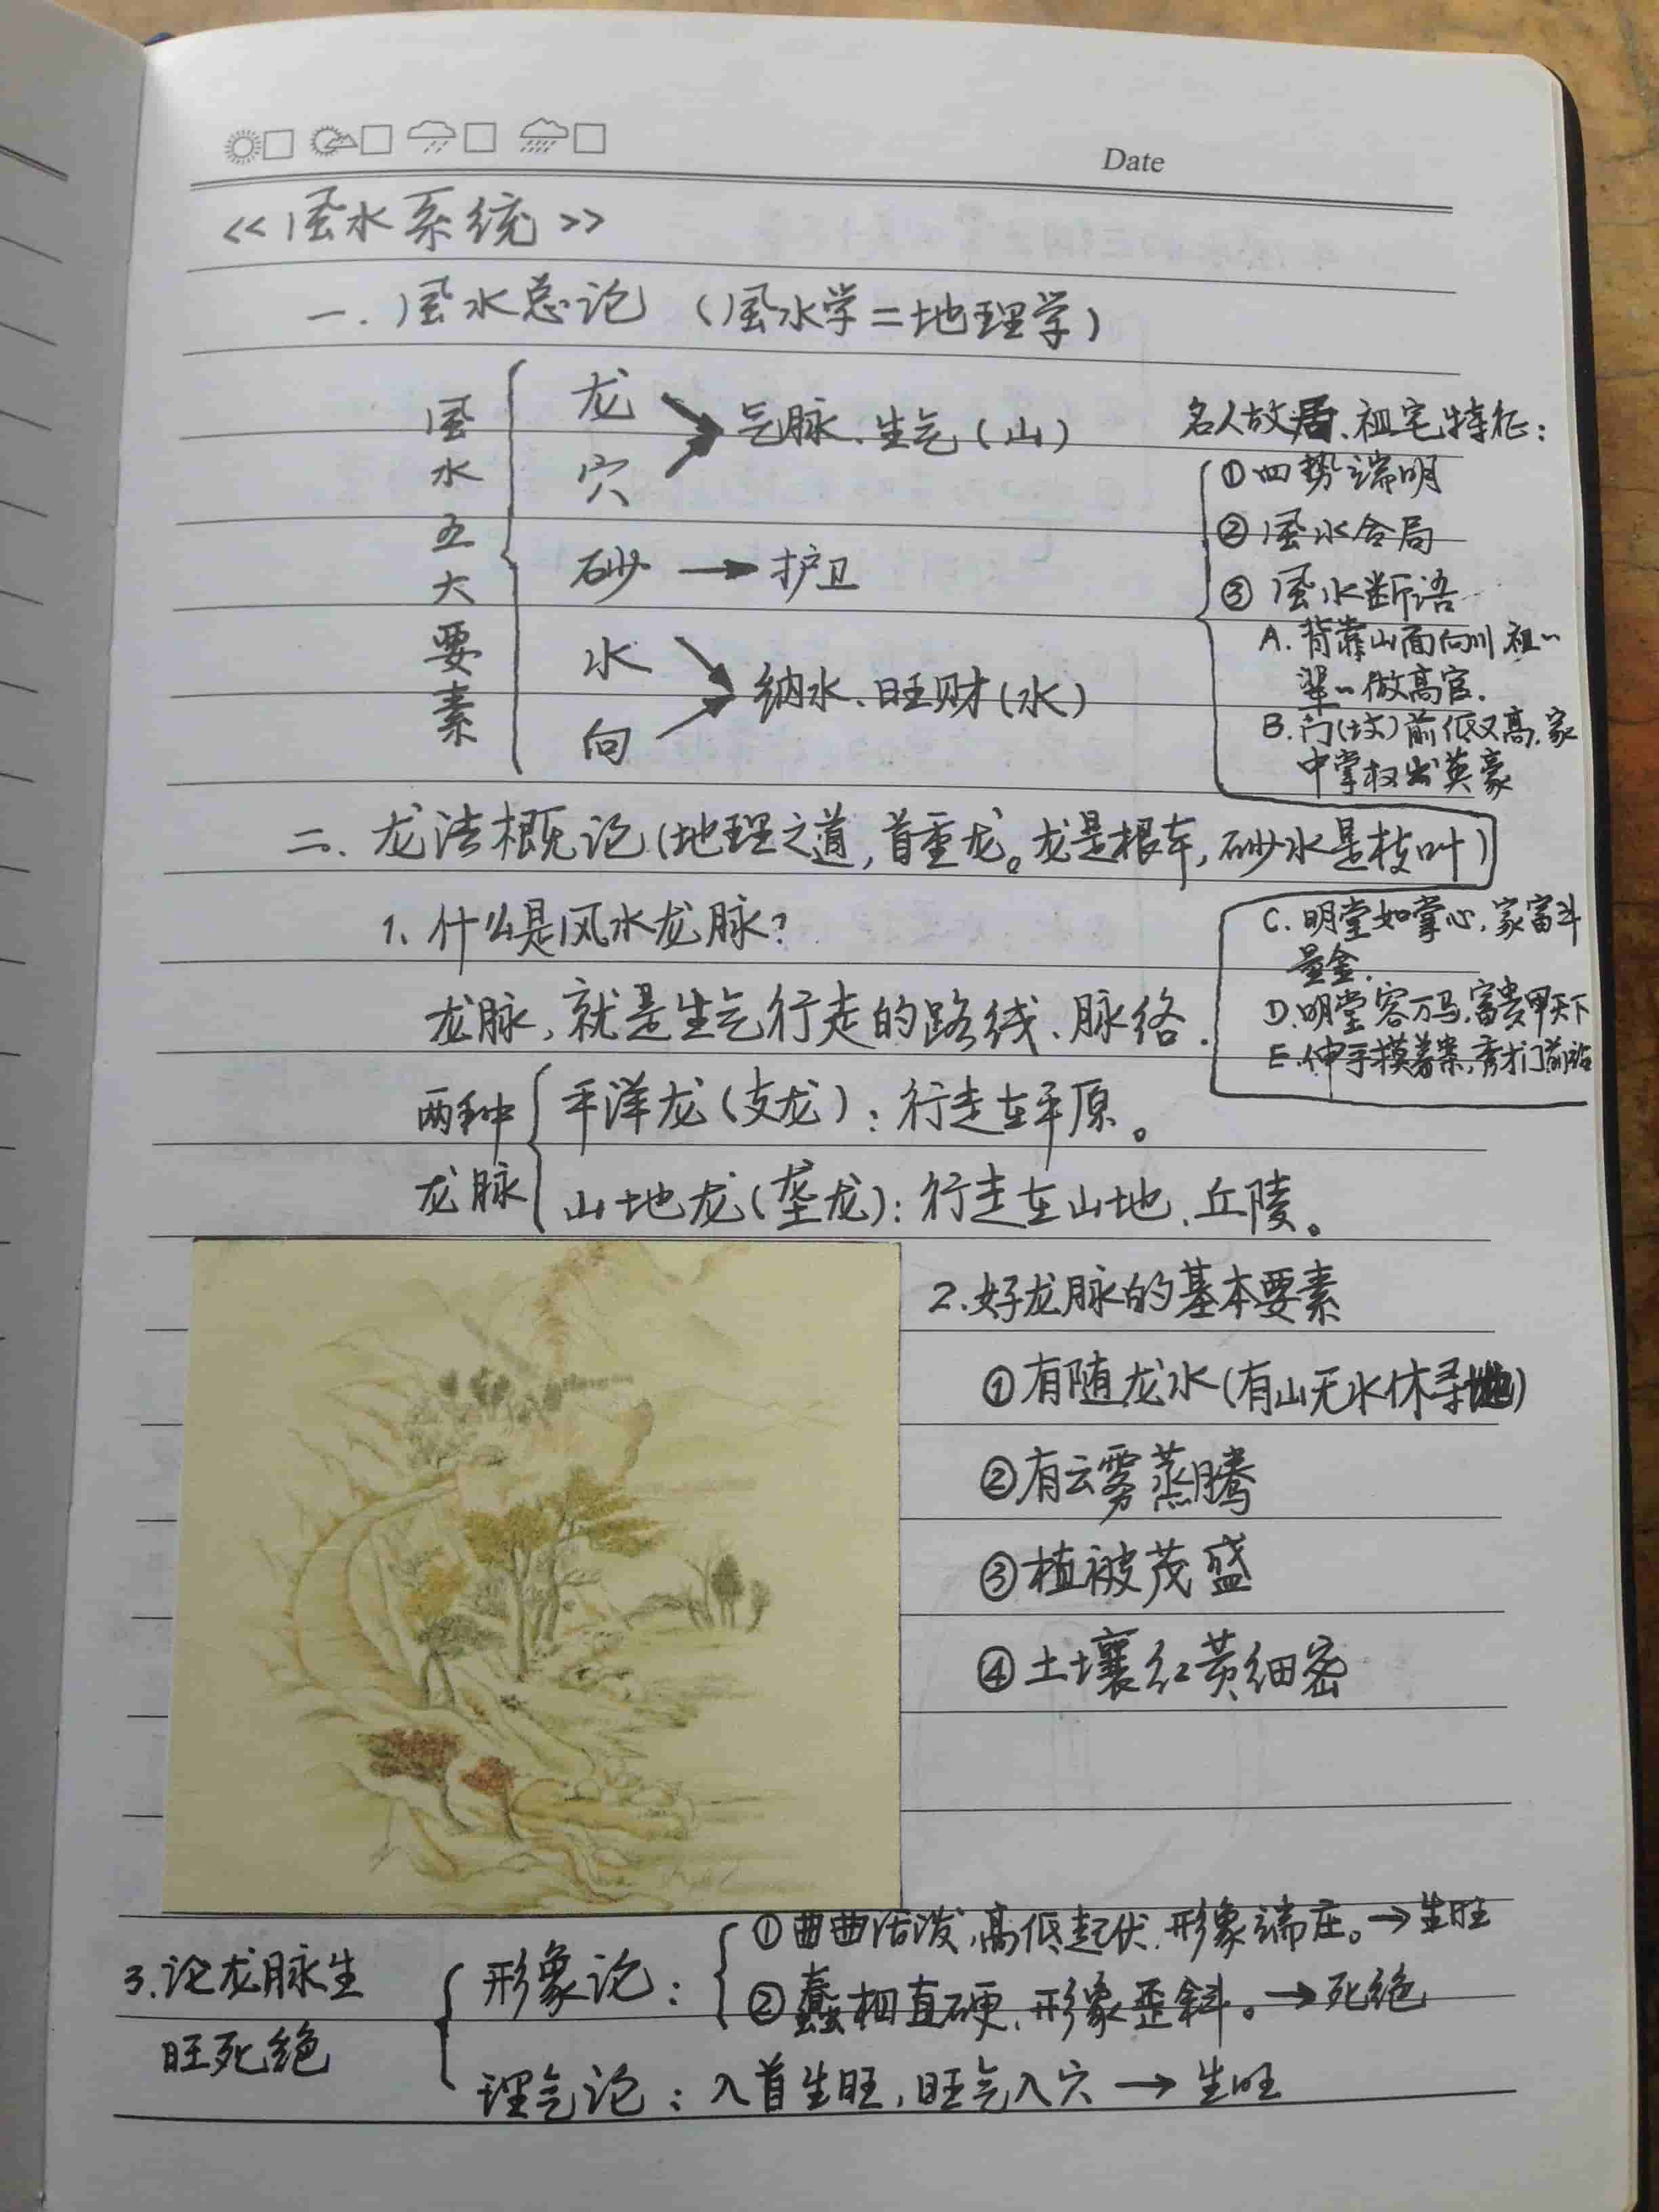 Date
<<风水系统>>
一.风水总论（风水学=地理学）
风水五大要素
龙
穴
气脉、生气（山）
砂 → 护卫
水
向
纳水、旺财(水)
名人故居、祖宅特征:
①四势端明
②风水合局
③风水断语
A.背靠山面向川 祖..
辈..做高官.
B.门(坟)前低又高,家
中掌权出英豪
C.明堂如掌心,家富斗
量金.
D.明堂容万马,富贵甲天下
E.伸手摸着案,秀才门前站
二、龙法概论(地理之道,首重龙。龙是根本,砂水是枝叶)
1、什么是风水龙脉?
龙脉,就是生气行走的路线、脉络.
两种
龙脉
平洋龙(支龙):行走在平原。
山地龙(垄龙):行走在山地、丘陵。
2.好龙脉的基本要素
①有随龙水(有山无水休寻地)
②有云雾蒸腾
③植被茂盛
④土壤红黄细密
3.论龙脉生
旺死绝
形象论:
①曲曲活泼,高低起伏,形象端庄。→生旺
②蠢粗直硬,形象歪斜。→死绝
理气论:入首生旺,旺气入穴→生旺